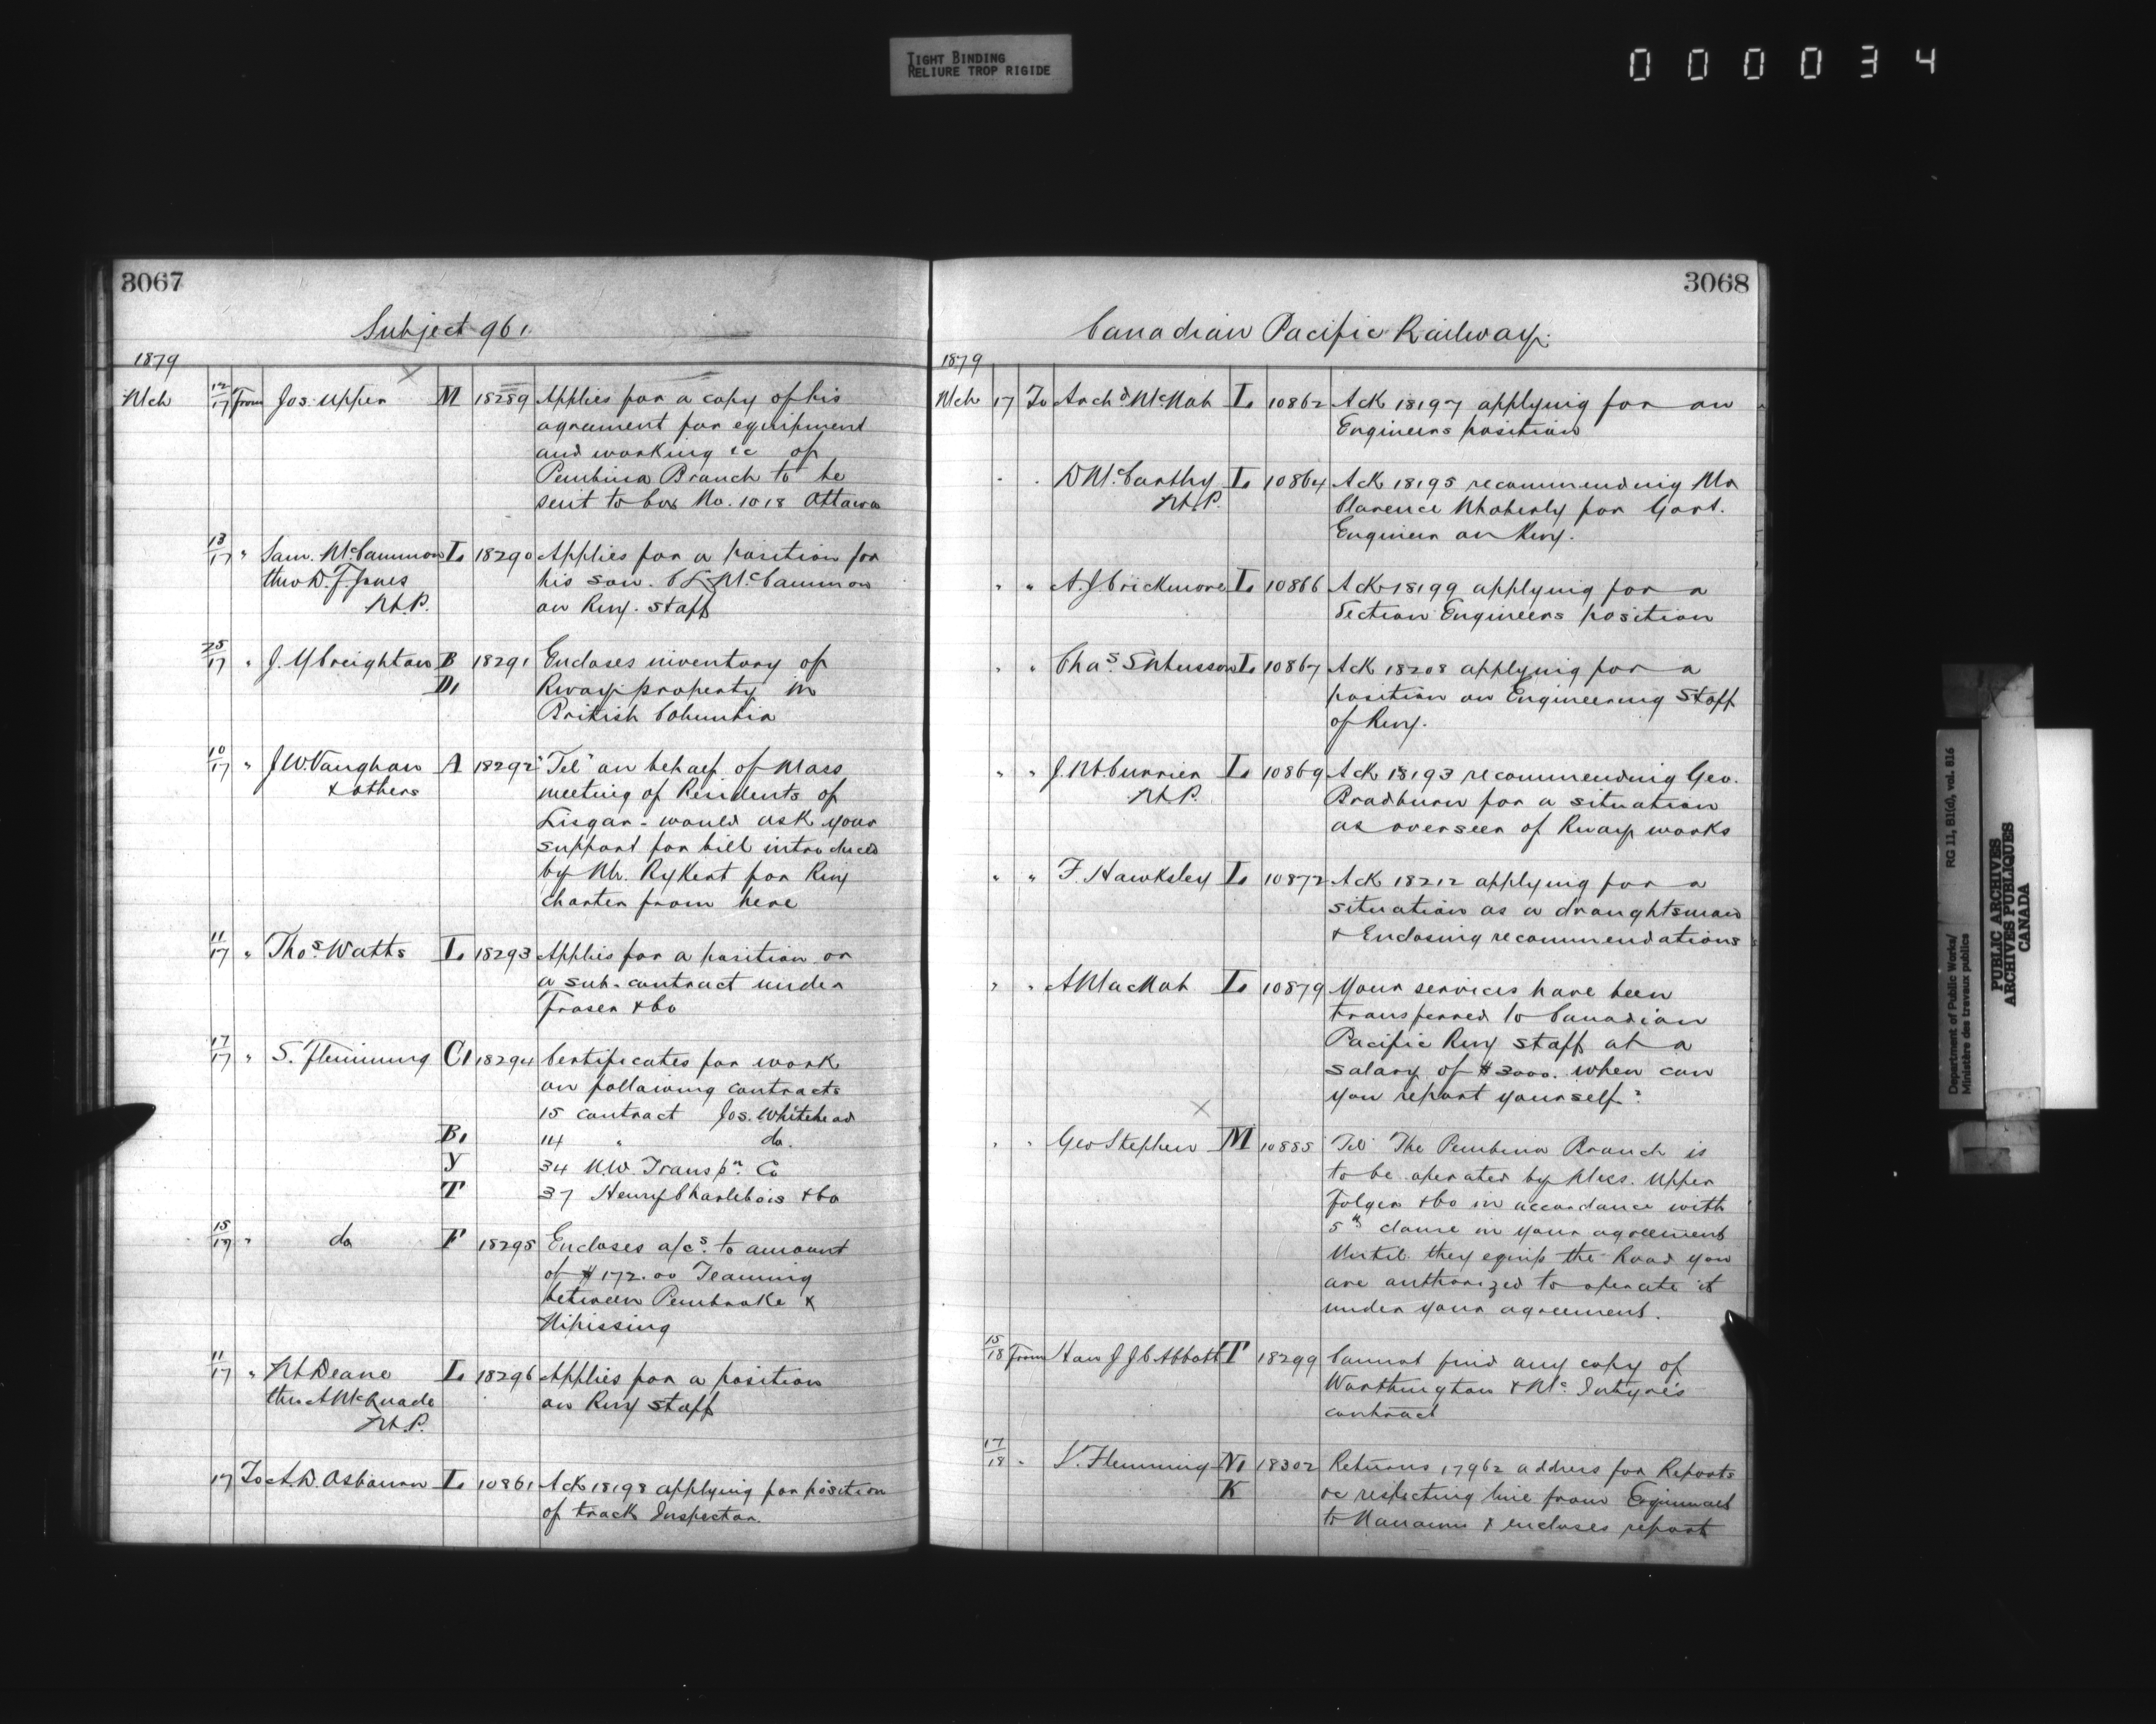 TIGHT BINDING
RELIURE TROP RIGIDE
000034
3067
Subject 961
1879
Mch 12/17 From Jos. Upper M 18289 Applies for a copy of his
agreement for equipment
and working &c of
Pembina Branch to be
sent to box No. 1018 Ottawa
13/17 " Sam. McCammon L 18290 Applies for a position for
thro D. F. Jones his son. C L McCammon
M.P. on Rwy. staff
25/17 " J. Y Creighton B 18291 Encloses inventory of
D1 Rway property in
British Columbia
10/17 " J. W. Vaughan A 18292 "Tel" on behalf of Mass
& others meeting of Residents of
Lisgar - would ask your
support for bill introduced
by Mr. Rykert for Rwy
charter from here
11/17 " Thos. Watts L 18293 Applies for a position or
a sub-contract under
Fraser & Co
17/17 " S. Fleming C1 18294 Certificates for work
on following contracts
15 contract Jos. Whitehead
B1 14 " do.
Y 34 N.W. Transpn. Co
T 37 Henry Charlebois & Co
15/17 " do F 18295 Encloses a/cs. to amount
of $172.00 Teaming
between Pembroke &
Nipissing
11/17 " M Deane L 18296 Applies for a position
thro A McQuade on Rwy staff
M.P.
17 To A. D. Osborne L 10861 Ack 18198 applying for position
of track Inspector.
3068
Canadian Pacific Railway.
1879
Mch 17 To Archd McNab L 10862 Ack 18197 applying for an
Engineers position
" " D McCarthy L 10864 Ack 18195 recommending Mr
M.P. Clarence Moberly for Govt.
Engineer on Rwy.
" " A. J Crickmore L 10866 Ack 18199 applying for a
Section Engineers position
" " Chas. L 10867 Ack 18208 applying for a
position on Engineering Staff
of Rwy.
" " J. M. Currier L 10869 Ack 18193 recommending Geo.
M.P. Bradburn for a situation
as overseer of Rway works
" " F. Hawksley L 10872 Ack 18212 applying for a
situation as a draughtsman
& Enclosing recommendations
" " A MacNab L 10879 Your services have been
transferred to Canadian
Pacific Rwy staff at a
salary of $3000. when can
you report yourself?
" " Geo Stephen M 10885 "Tel" The Pembina Branch is
to be operated by Mess. Upper
Folger & Co in accordance with
5th clause in your agreement
Until they equip the Road you
are authorized to operate it
under your agreement.
15/18 From Hon J J C Abbott T 18299 Cannot find any copy of
Worthington & McIntyre's
contract
17/18 " S. Fleming N1 18302 Returns 17962 address for Reports
K &c respecting line from Esquimalt
to Nanaimo & encloses report
Department of Public Works/ RG 11, B1(d), vol. 816
Ministère des travaux publics
PUBLIC ARCHIVES
ARCHIVES PUBLIQUES
CANADA